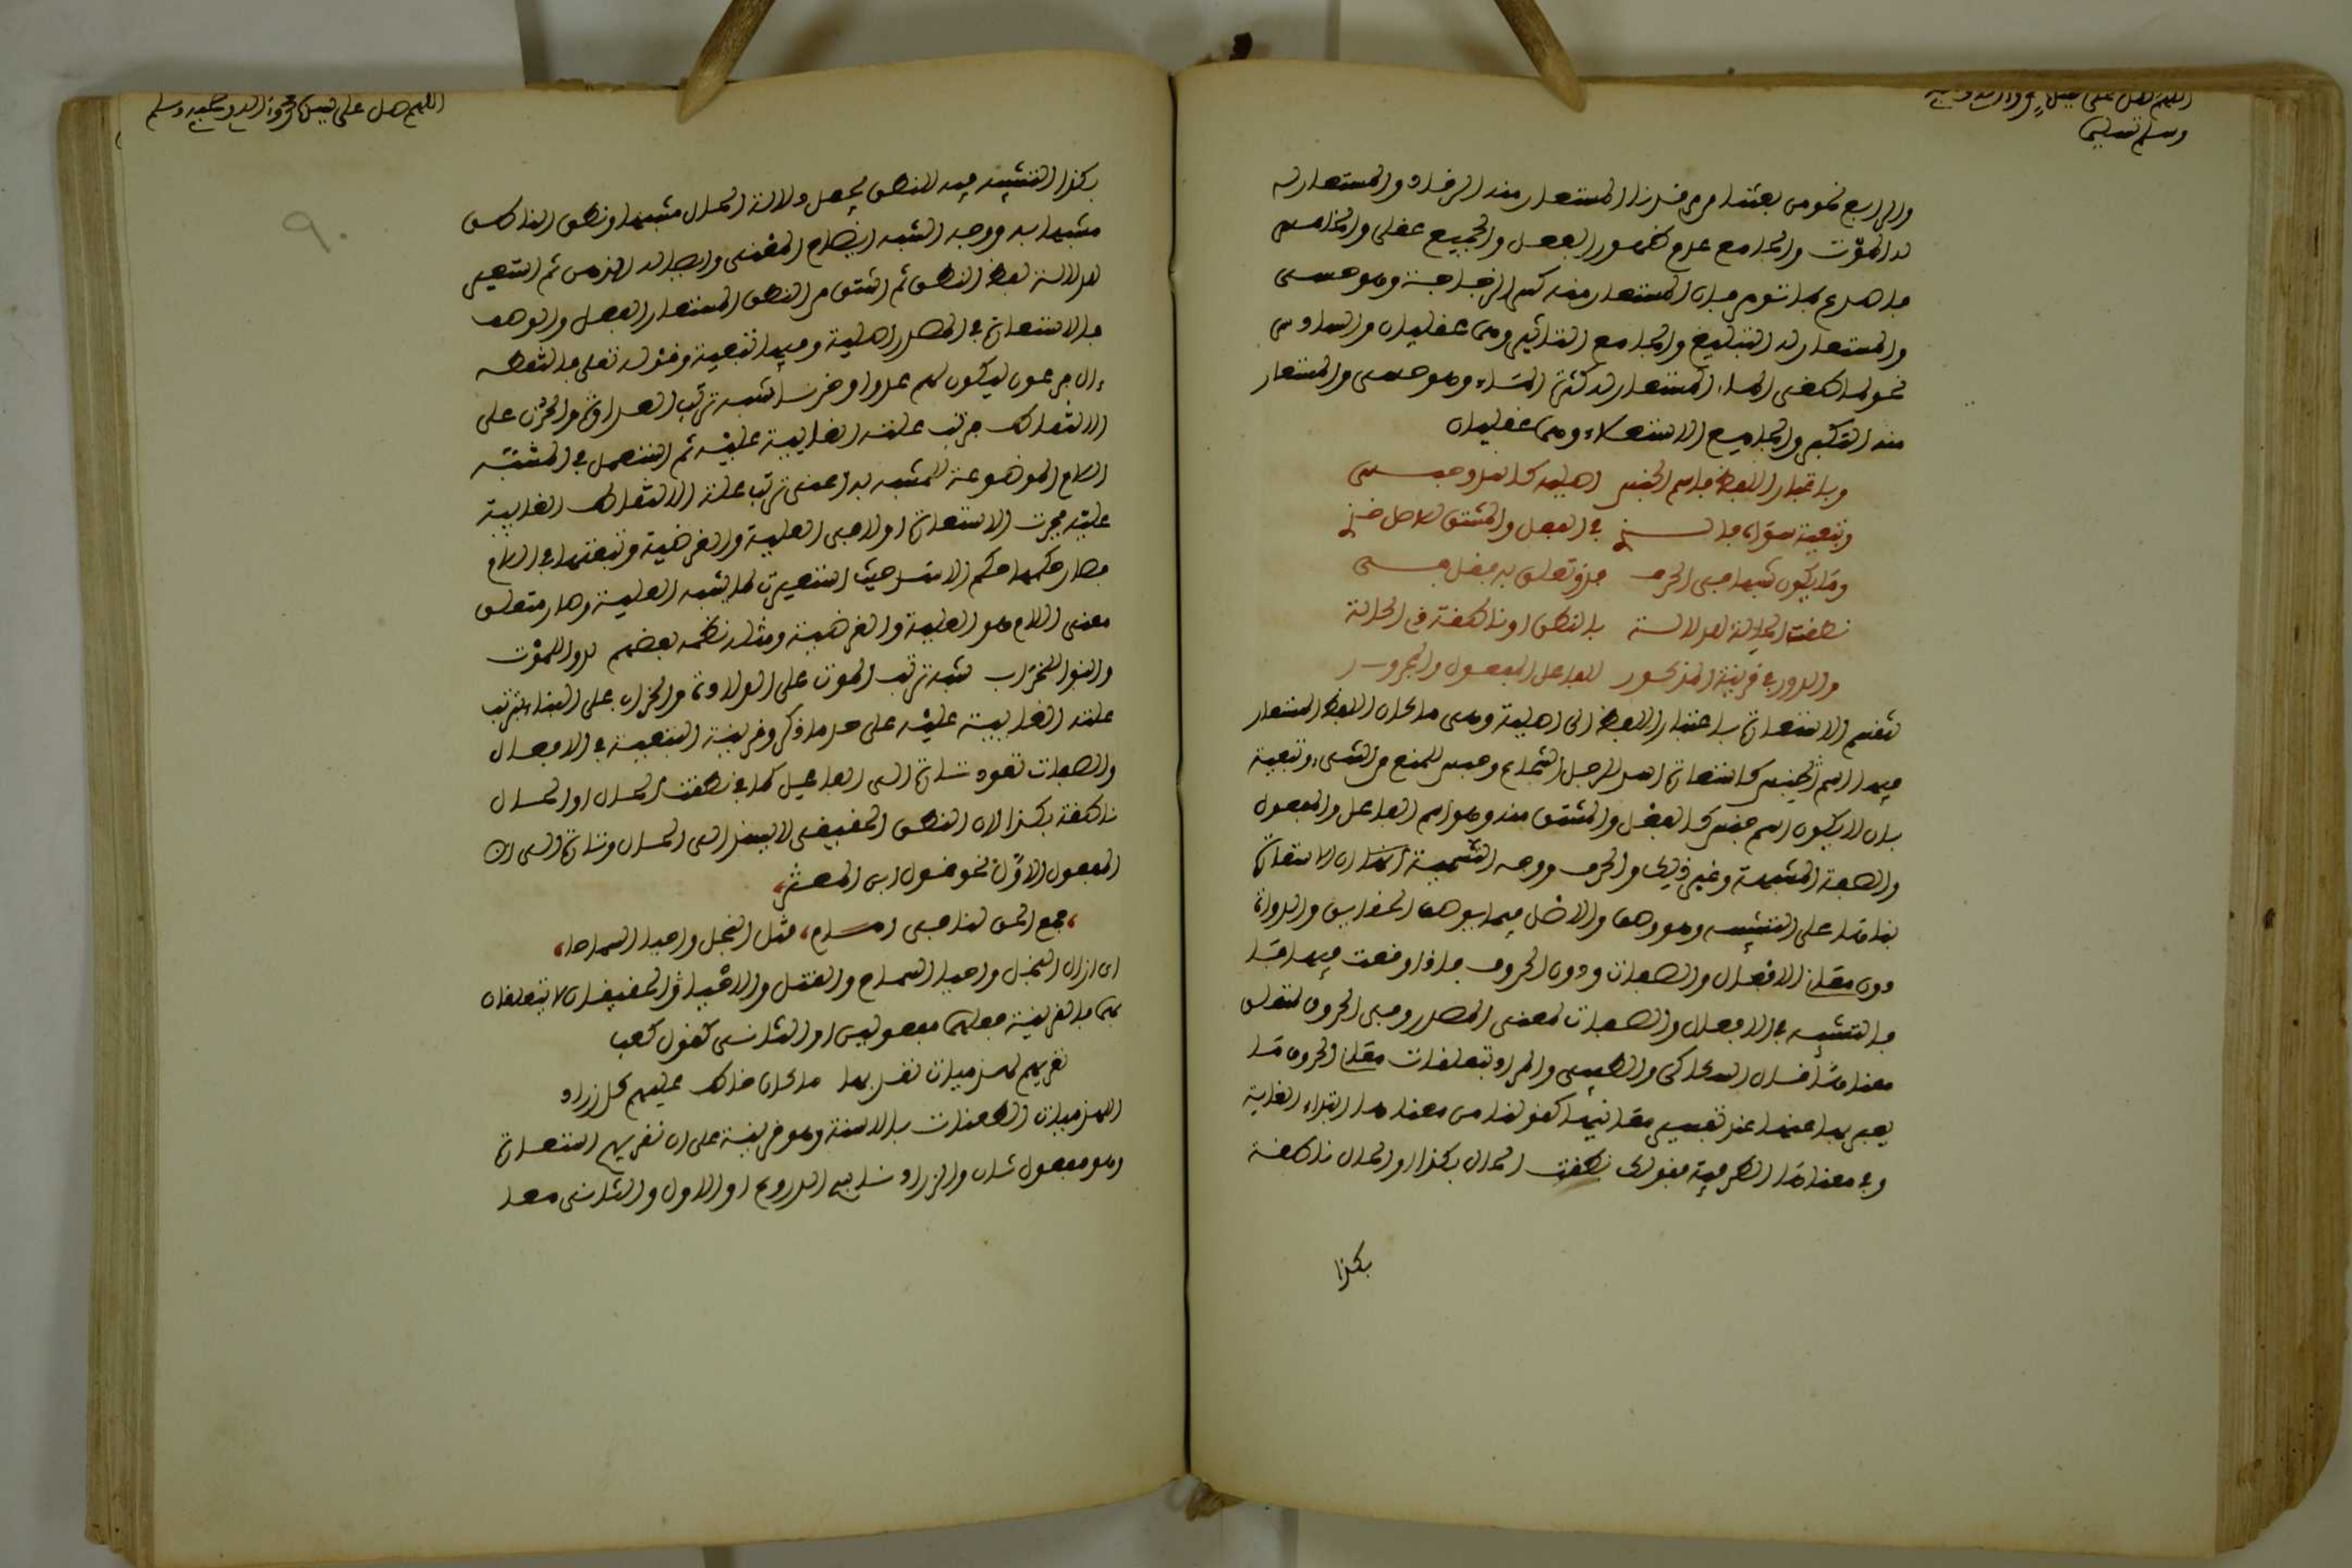 اللهم صل على سيدنا محمد وآله وصحبه
وسلم تسليما
والرابع نحو من بعثنا من مرقدنا المستعار منه الرقاد والمستعار له
له الموت والجامع عدم ظهور الفعل والجميع عقلي والخامس
فاصدع بما تومر فان المستعار منه كسر الزجاجة وهو حسي
والمستعار له التبليغ والجامع التاثير وهما عقليان والسادس
نحو لما طغى الماء المستعار له كثرة الماء وهو حسي والمستعار
منه التكبر والجامع الاستعلاء وهما عقليان
وباعتبار اللفظ فاسم الجنس اصلية كاسد وحبس
وتبعية سواه في الفعل والمشتق
وما يكون تبعا في الحرف
نطقت الحالة للدلالة بالنطق او ناطقة في الحالة
والدور في قرينة المذكور للفاعل المفعول والمجرور
تنقسم الاستعارة باعتبار اللفظ الى اصلية وهي ما كان اللفظ المستعار
فيها اسم الجنس كاستعارة اسد للرجل الشجاع وحبس للمنع من الشيء وتبعية
بان لا يكون اسم جنس كالفعل والمشتق منه وهو اسم الفاعل والمفعول
والصفة المشبهة وغير ذلك والحرف ووجه التسمية بذلك ان الاستعارة
بناؤها على التشبيه وهو وصف والاصل فيما يوصف الحقايق والذوات
دون معان الافعال والصفات ودون الحروف فاذا وقعت فيها
فالتشبيه في الافعال والصفات لمعنى المصدر وفي الحروف لمتعلق
معناها قال السكاكي والطيبي والمراد بتعلقات معان الحروف ما
يعبر بها عنها عند تفسير معانيها كقولنا من معناها ابتداء الغاية
وفي معناها الظرفية فقولك نطقت الحال بكذا والحال ناطقة
بكذا
اللهم صل على سيدنا محمد وآله وصحبه وسلم
٩٠
بكذا التشبيه فيه للنطق يجعل دلالة الحال مشبها ونطق الناطق
مشبها به ووجه الشبه ايضاح المعنى وايصاله للذهن ثم استعير
للدلالة لفظ النطق ثم اشتق من النطق المستعار الفعل والوصف
فالاستعارة في المصدر اصلية وفيهما تبعية وقوله تعلى فالتقطه
ءال فرعون ليكون لهم عدوا وحزنا شبه ترتب العداوة والحزن على
الالتقاط بترتب علته الغايية عليه ثم استعمل في المشبه
اللام الموضوعة للمشبه به اعني ترتب علة الالتقاط الغايية
عليه فجرت الاستعارة اولا في العلية والغرضية وتبعيتها في اللام
فصار حكمها حكم الاسد حيث استعيرت لما يشبه العلية وصار متعلق
معنى اللام هو العلية والغرضية ومثله نظمه بعضهم لدوا للموت
وابنوا للخراب شبه ترتب الموت على الولادة والخراب على البناء بترتب
علته الغايية عليه على حد ما ذكر وقرينة التبعية في الافعال
والصفات تعود تارة الى الفاعل كما في نطقت الحال او الحال
ناطقة بكذا لان النطق الحقيقي لا يسند الى الحال وتارة الى ان
المفعول الاول نحو قول ابن المعتز
جمع الحق لنا في امام قتل البخل واحيا السماحا
اي ازال البخل واحيا السماح والقتل والاحياء الحقيقيان لا يتعلقان
بهما فالقرينة جعلهما مفعولين او الثاني كقول كعب
نقريهم لهذميات نقد بها ما كان خاط عليهم كل زراد
اللهذميات الطعنات بالاسنة وهو قرينة على ان نقريهم استعارة
وهو مفعول ثان والزراد ناسج الدروع او الاول والثاني معا